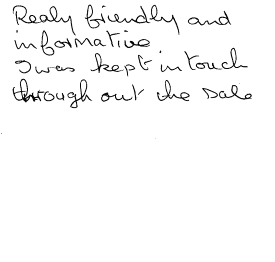 Realy friendly and
informative.
I was kept in touch
through out the sale